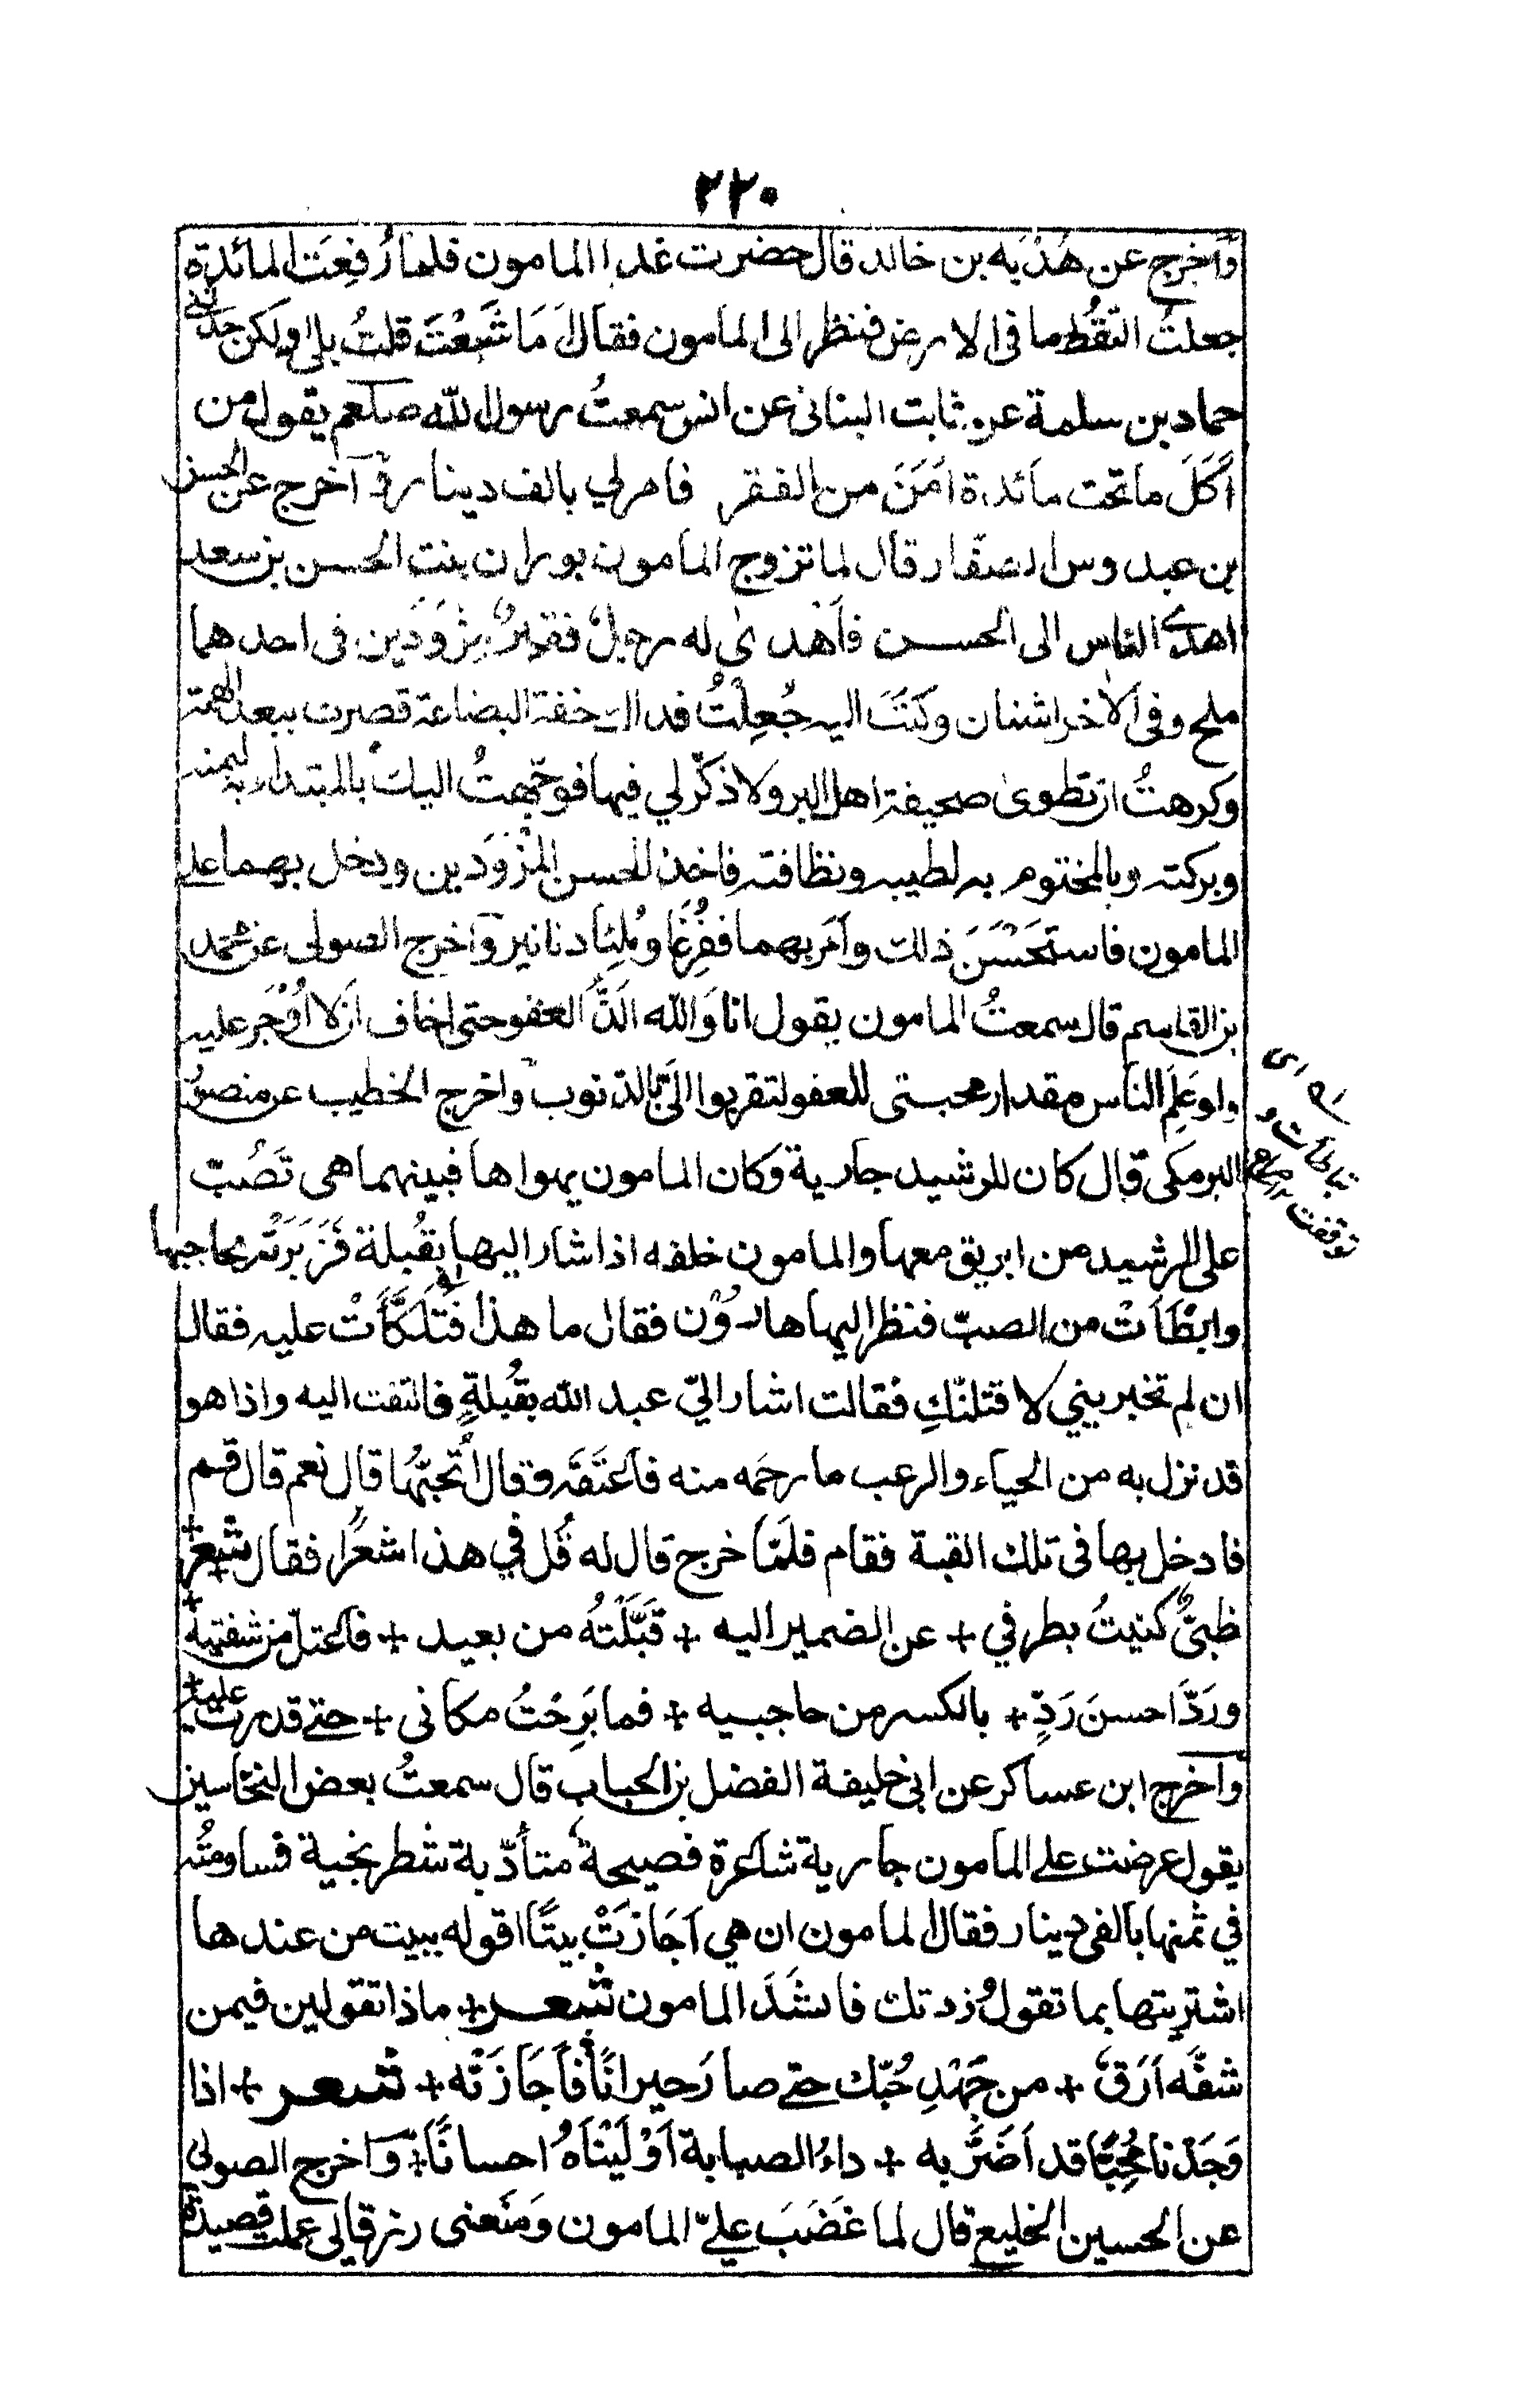 ٢٢٠
وَاَخرج عن هُدْبَه بن خالد قال حضرت غداا المامون فلما رُفِعَت المائدة
جعلتُ التقُط ما فى الارض فنظر الى المامون فقال اَمَا شَبِعْتَ قلتُ بلى ولكن حدثنى
حماد بن سلمة عن ثابت البنانى عن انس سمعتُ رسول الله صلعم يقول من
اَكَلَ ما تحت مائدة اَمَنَ من الفقر فامر لي بالف دينار وَ اَخرج عن الحسن
بن عبدوس الصفار قال لما تزوج المامون بوران بنت الحسن بن سعد
اهدى الناس الى الحسن فاَهْدىٰ له رجلٌ فقيرٌ مِزْوَدَين فى احدهما
ملح وفى الاٰخر اشنان وكَتَبَ اليه جُعِلْتُ فداك خفة البضاعة قصرت ببعد الهمة
وكرهتُ ان تطوىٰ صحيفة اهل البر ولا ذكر لي فيها فوجّهتُ اليك بالمبتداء به ليمنه
وبركته وبالمختوم به لطيبه ونظافته فاخذ الحسن المِزْوَدين ودخل بهما على
المامون فاستَحْسَنَ ذلك واَمَر بهما ففُرِّغا ومُلِئَا دنانير وَاَخرج الصولى عن محمد
بن القاسم قال سمعتُ المامون يقول انا وَالله الَذُّ العفو حتى اخاف ان لا اُوْجَر عليه
ولو عَلِمَ الناس مقدار محبتى للعفو لتقربوا الَيَّ بالذنوب وَاخرج الخطيب عن منصور
البرمكى قال كان للرشيد جارية وكان المامون يهواها فبينهما هى تَصُبّ
على الرشيد من ابريق معها والمامون خلفه اذ اشار اليها بقُبلة فَزَبَرَتْه بحاجبها
وابْطَأَتْ من الصبّ فنظر اليها هارُوْن فقال ما هذا فَتَلَكَّأَتْ عليه فقال
اى تاخرت و
توقفت
ان لم تخبريني لاقتلنّكِ فقالت اشار اليّ عبد الله بقُبلةٍ فالتفت اليه واذا هو
قد نزل به من الحياء والرعب ما رحمَه منه فاعتَنَقَه وقال اُتحبّهُا قال نعم قال قم
فادخل بها فى تلك القبة فقام فلَمّا خرج قال له قُل في هذا شعرًا فقال شعر
ظبىٌ كنيتُ بطرفي + عن الضمير اليه + قَبَّلْتُه من بعيد + فاعتلّ من شفتيه +
ورَدَّ احسنَ رَدٍّ + بالكسر من حاجبيه + فما بَرِحْتُ مكانى + حتى قدرت عليه +
وَاَخرج ابن عساكر عن ابى خليفة الفضل بن الحباب قال سمعتُ بعض النخاسين
يقول عرضت على المامون جارية شاعرة فصيحة متأدّبة شطرنجية فساومتُه
في ثمنها بالفى دينار فقال المامون ان هي اَجَازَتْ بيتًا اقوله ببيت من عندها
اشتريتها بما تقولُ زدتك فانشَدَ المامون شعر + ماذا تقولين فيمن
شفَّه اَرَقٌ + من جَهْدِ حُبّك حتى صارَ حيرانَاً فاَجَازَتْه + شعر + اذا
وَجَدْنا مُحِبًّا قد اَضَرَّ به + داءُ الصبابة اَوْلَيْنَاهُ احسانًا + وَاَخرج الصولى
عن الحسين الخليع قال لما غَضَبَ عليّ المامون ومَنَعنى رزقا لى عملت قصيدة